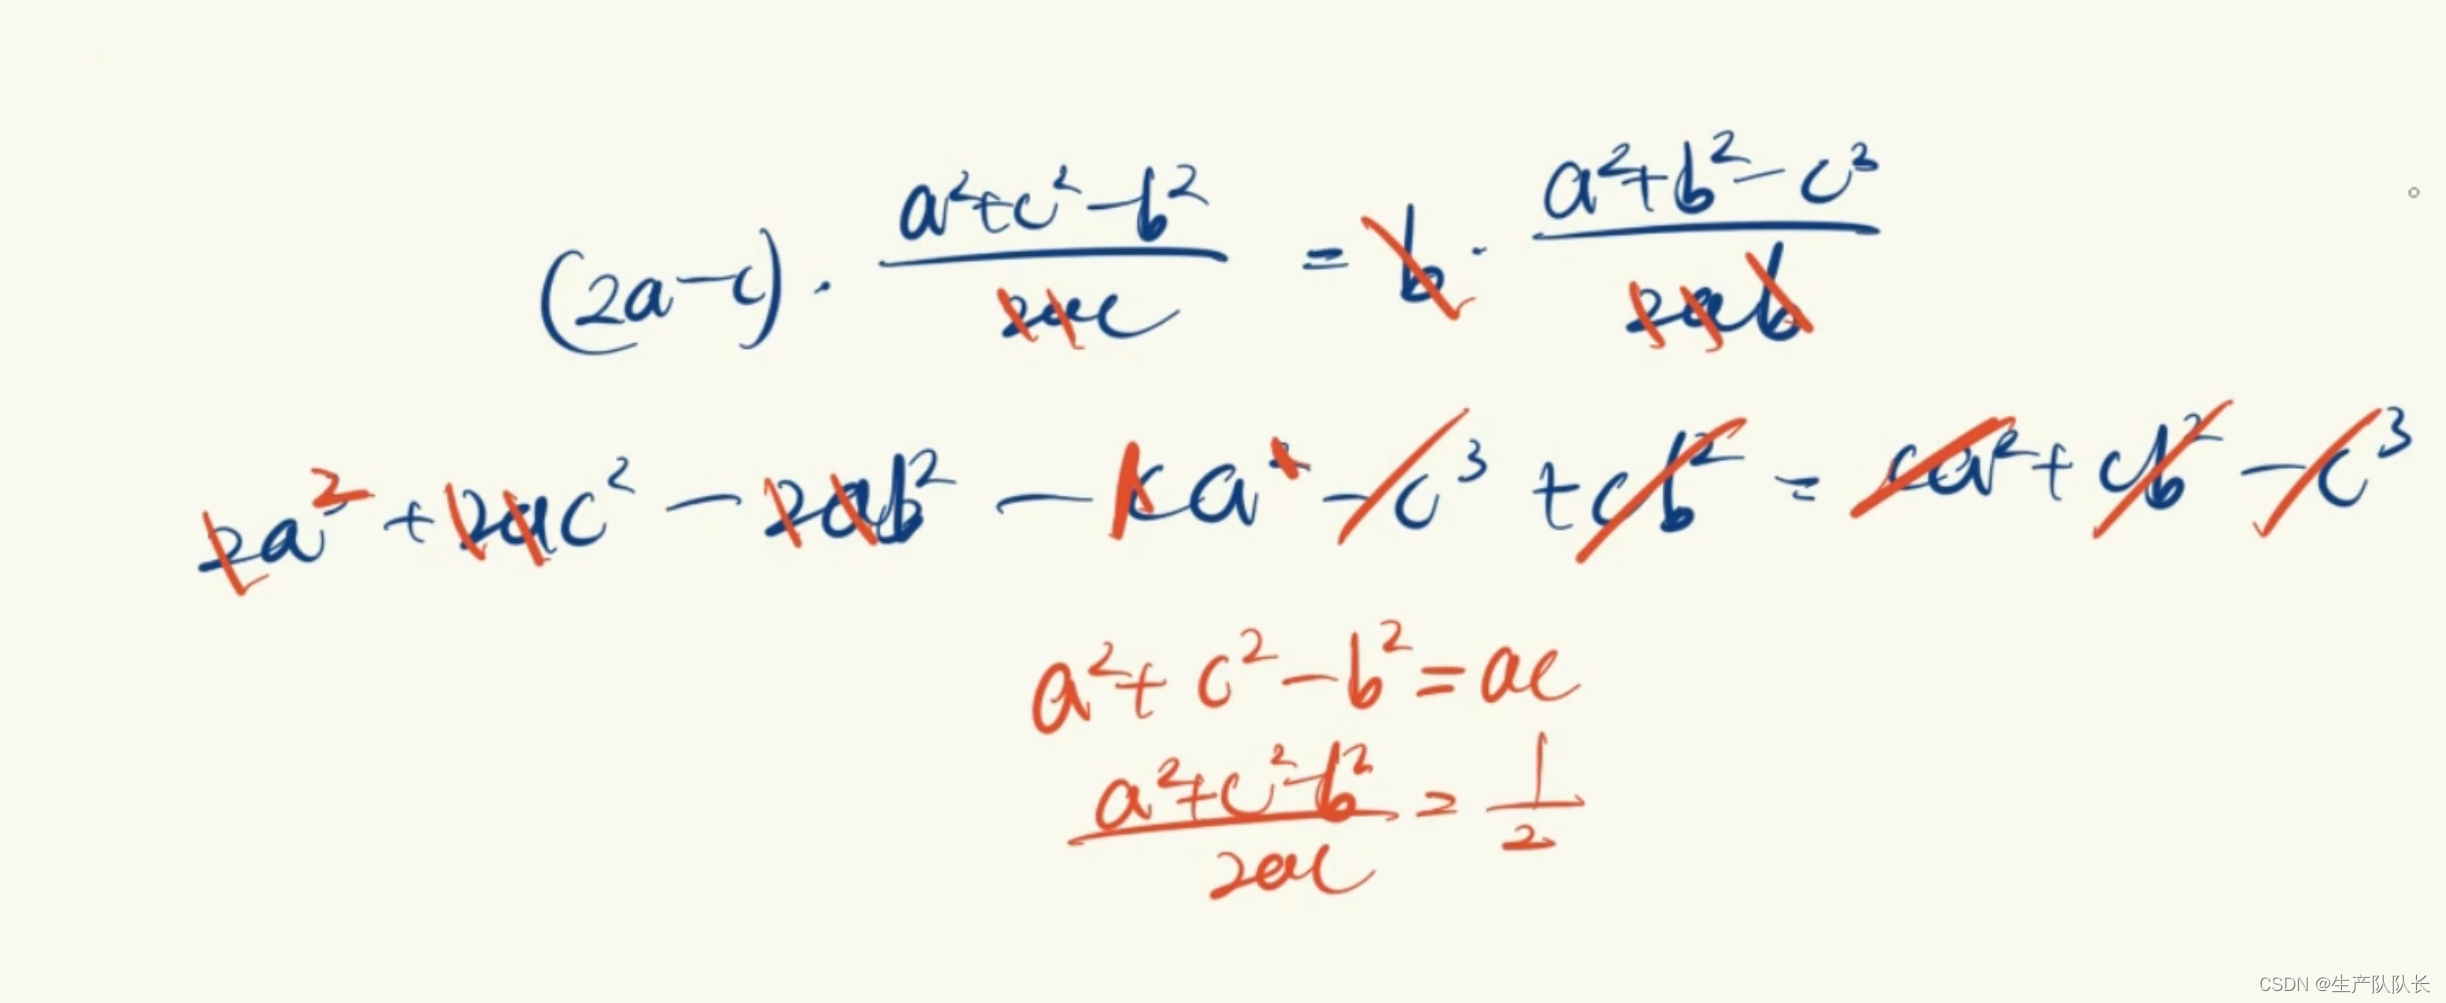 (2a-c)·\frac{a²+c²-b²}{2ac} = b·\frac{a²+b²-c²}{2ab}
2a²+2ac²-2ab²-ca²-c³+cb²=ca²+cb²-c³
a²+c²-b²=ac
\frac{a²+c²-b²}{2ac}=\frac{1}{2}
CSDN @生产队队长